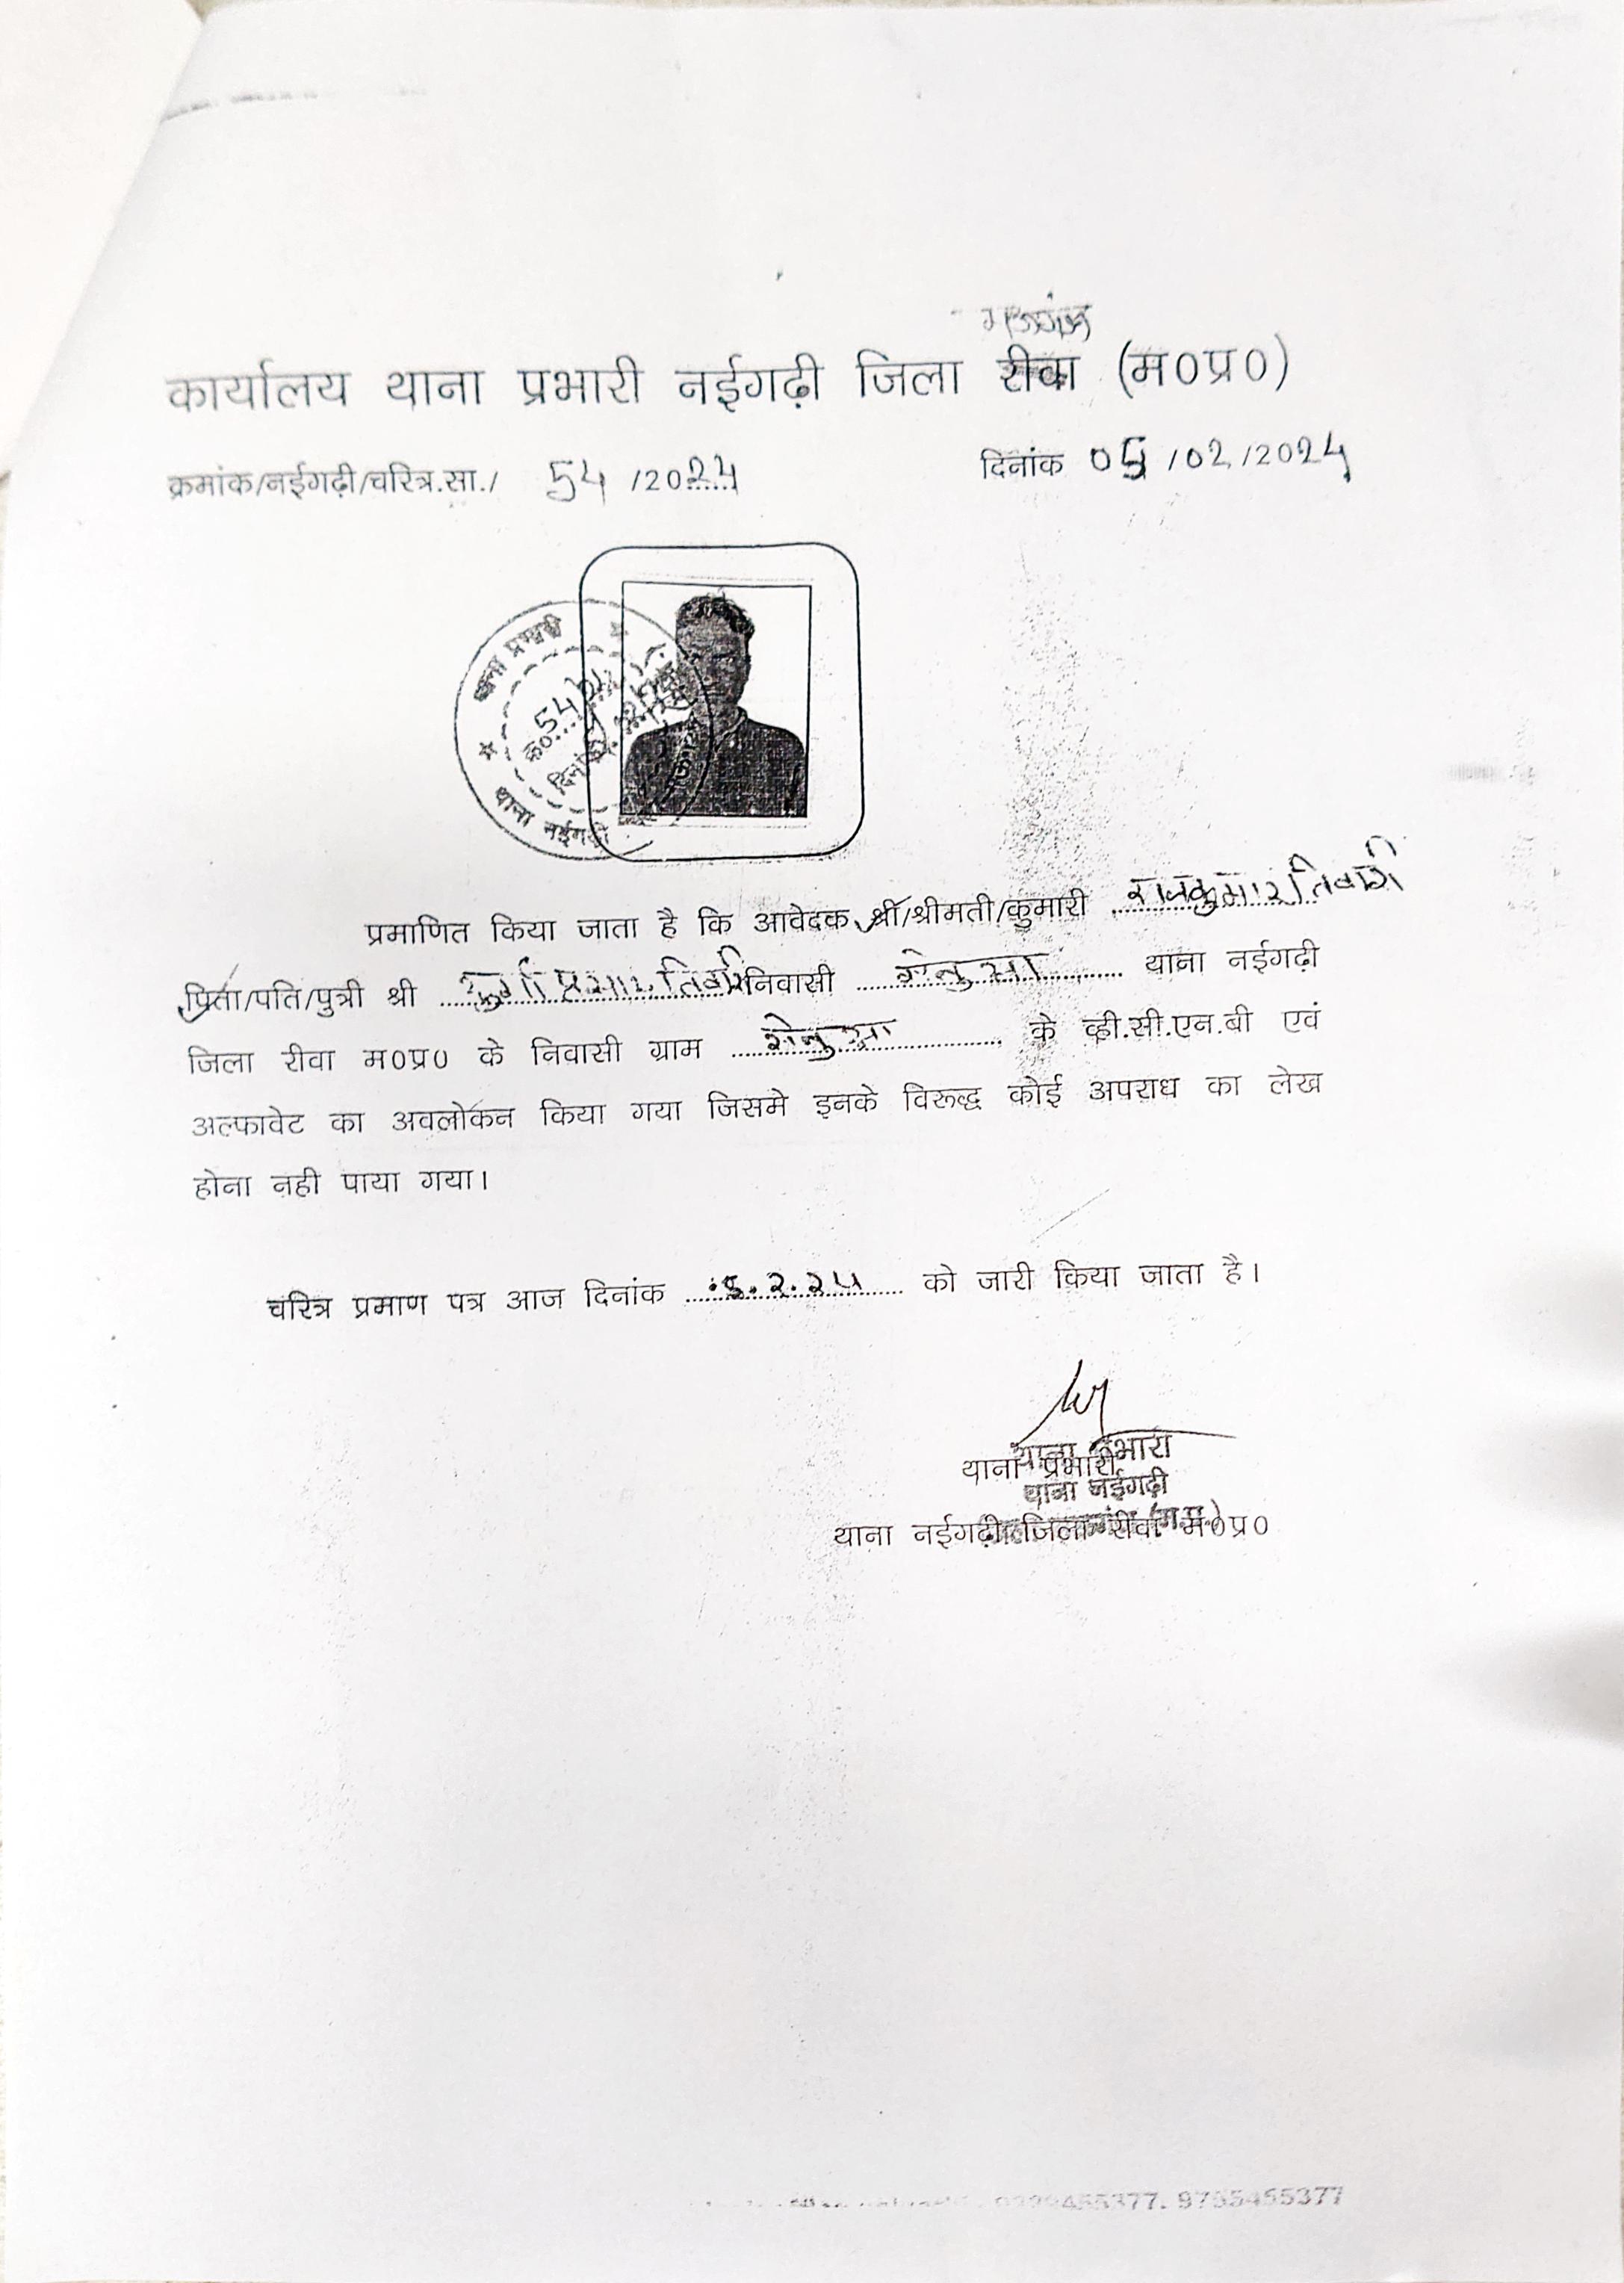 मऊगंज
कार्यालय थाना प्रभारी नईगढ़ी जिला रीवा (म०प्र०)
क्रमांक/नईगढ़ी/चरित्र.सा./ 54 /2024 दिनांक 05/02/2024
थाना प्रभारी
क्र० 54/24
दिनांक
थाना नईगढ़ी
प्रमाणित किया जाता है कि आवेदक श्री/श्रीमती/कुमारी राजकुमार तिवारी
पिता/पति/पुत्री श्री दुर्गा प्रसाद तिवारी निवासी थाना नईगढ़ी
जिला रीवा म०प्र० के निवासी ग्राम के व्ही.सी.एन.बी एवं
अल्फावेट का अवलोकन किया गया जिसमे इनके विरूद्ध कोई अपराध का लेख
होना नही पाया गया।
चरित्र प्रमाण पत्र आज दिनांक 5.2.24 को जारी किया जाता है।
थाना प्रभारी
थाना प्रभारी
थाना नईगढ़ी
थाना नईगढ़ी जिला रीवा म०प्र०
9755455377